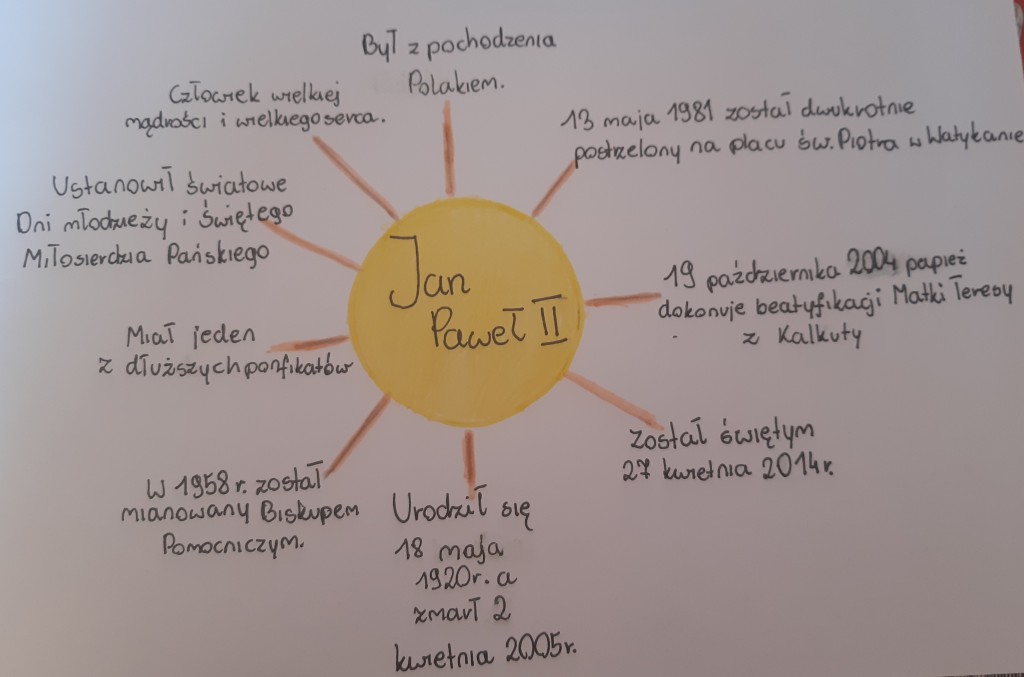 Był z pochodzenia
Polakiem.
Człowiek wielkiej
mądrości i wielkiego serca.
13 maja 1981 został dwukrotnie
postrzelony na placu św. Piotra w Watykanie
Ustanowił światowe
Dni młodzieży i świętego
Miłosierdzia Pańskiego
Jan
Paweł II
19 października 2004 papież
dokonuje beatyfikacji Matki Teresy
z Kalkuty
Miał jeden
z dłuższych ponfikatów
został świętym
27 kwietnia 2014r.
W 1958 r. został
mianowany Biskupem
Pomocniczym.
Urodził się
18 maja
1920r. a
zmarł 2
kwietnia 2005r.